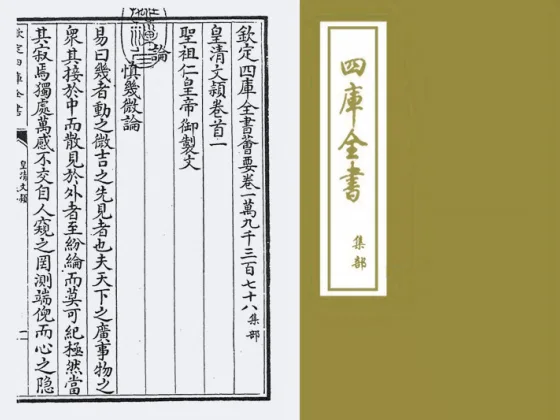 四庫全書
集部
欽定四庫全書薈要卷一萬九千三百七十八集部
皇清文穎卷首一
聖祖仁皇帝御製文
論
慎幾微論
易曰幾者動之微吉之先見者也夫天下之廣事物之
衆其接於中而散見於外者至紛綸而莫可紀極然當
其寂焉獨處萬感不交自人窺之罔測端倪而心之隐
欽定四庫全書
皇清文穎